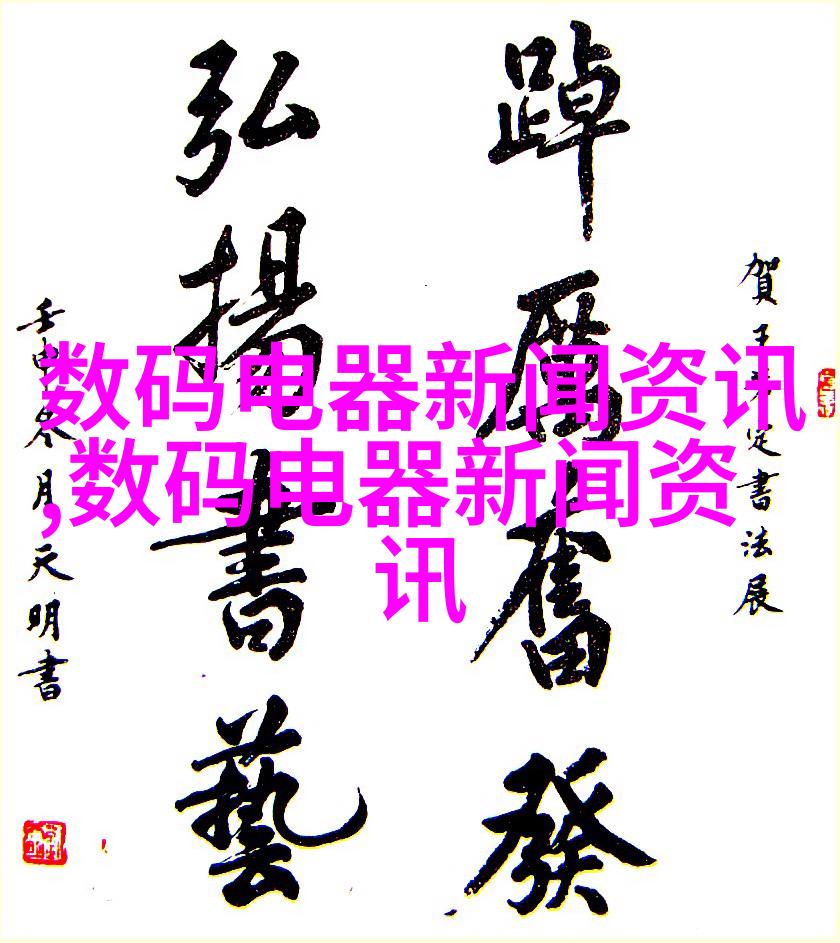 賀王尹定書法展
踔厲奮發
弘揚書藝
壬申冬月天明書
数码电器新闻资讯
,数码电器新闻资
讯